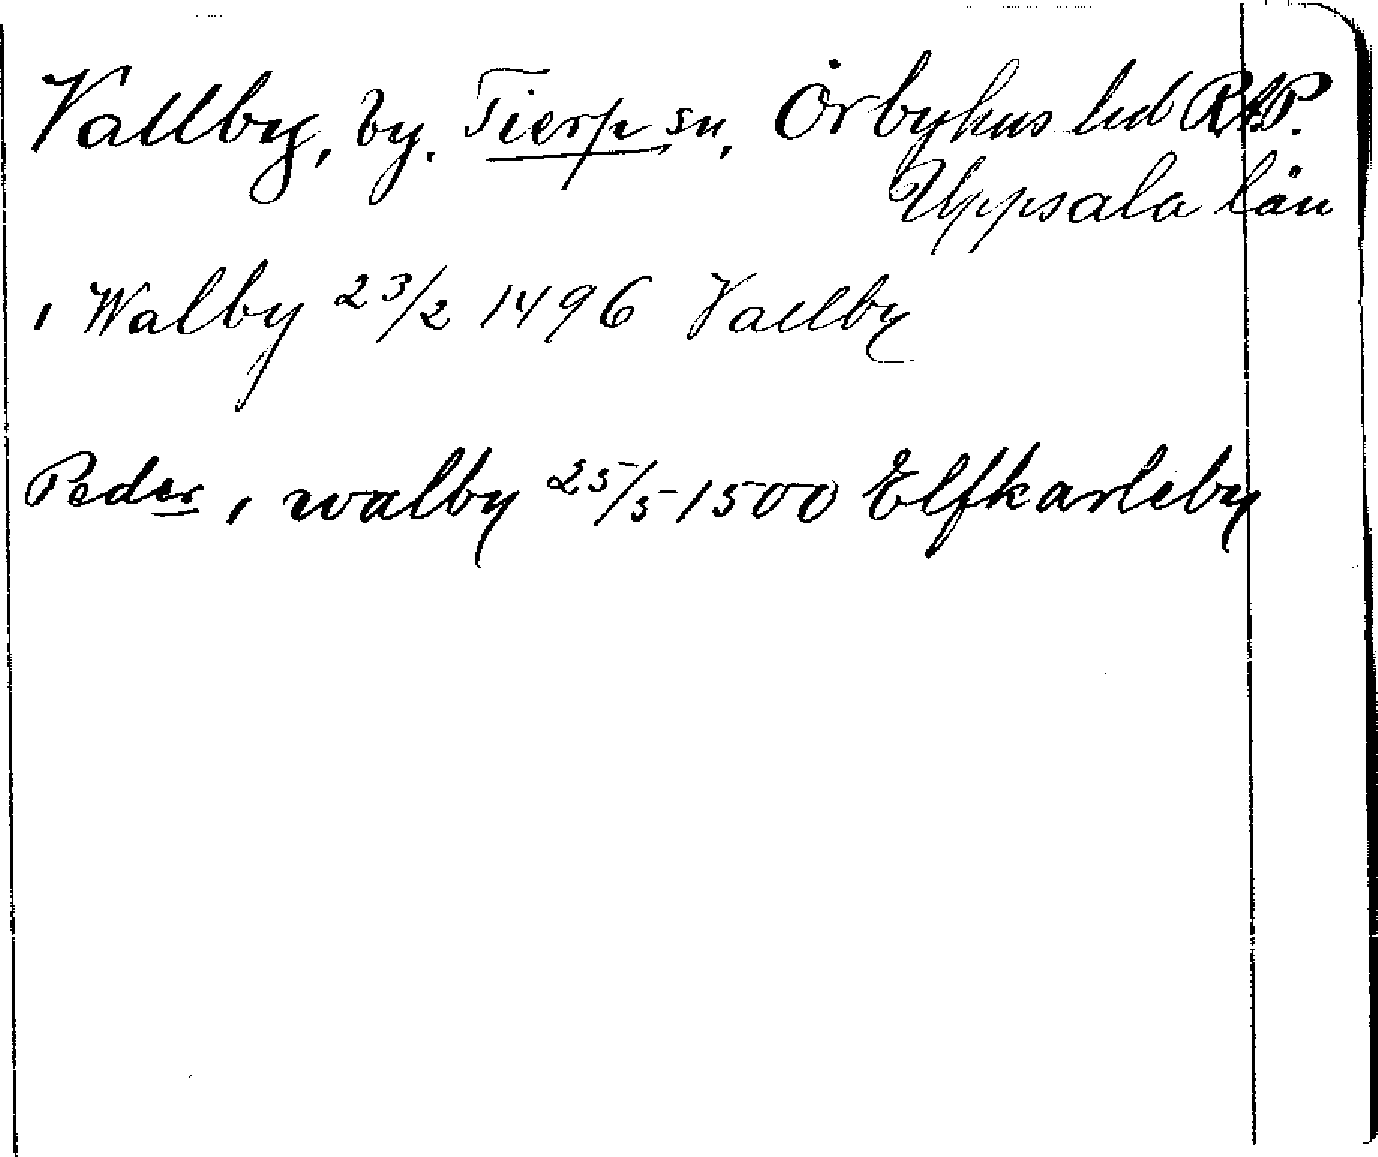 Vallby, by. Tierp sn, Örbyhus hd RAP.
Uppsala län
i Walby 23/2 1496 Vallby
Peder i walby 25/5 1500 Elfkarleby